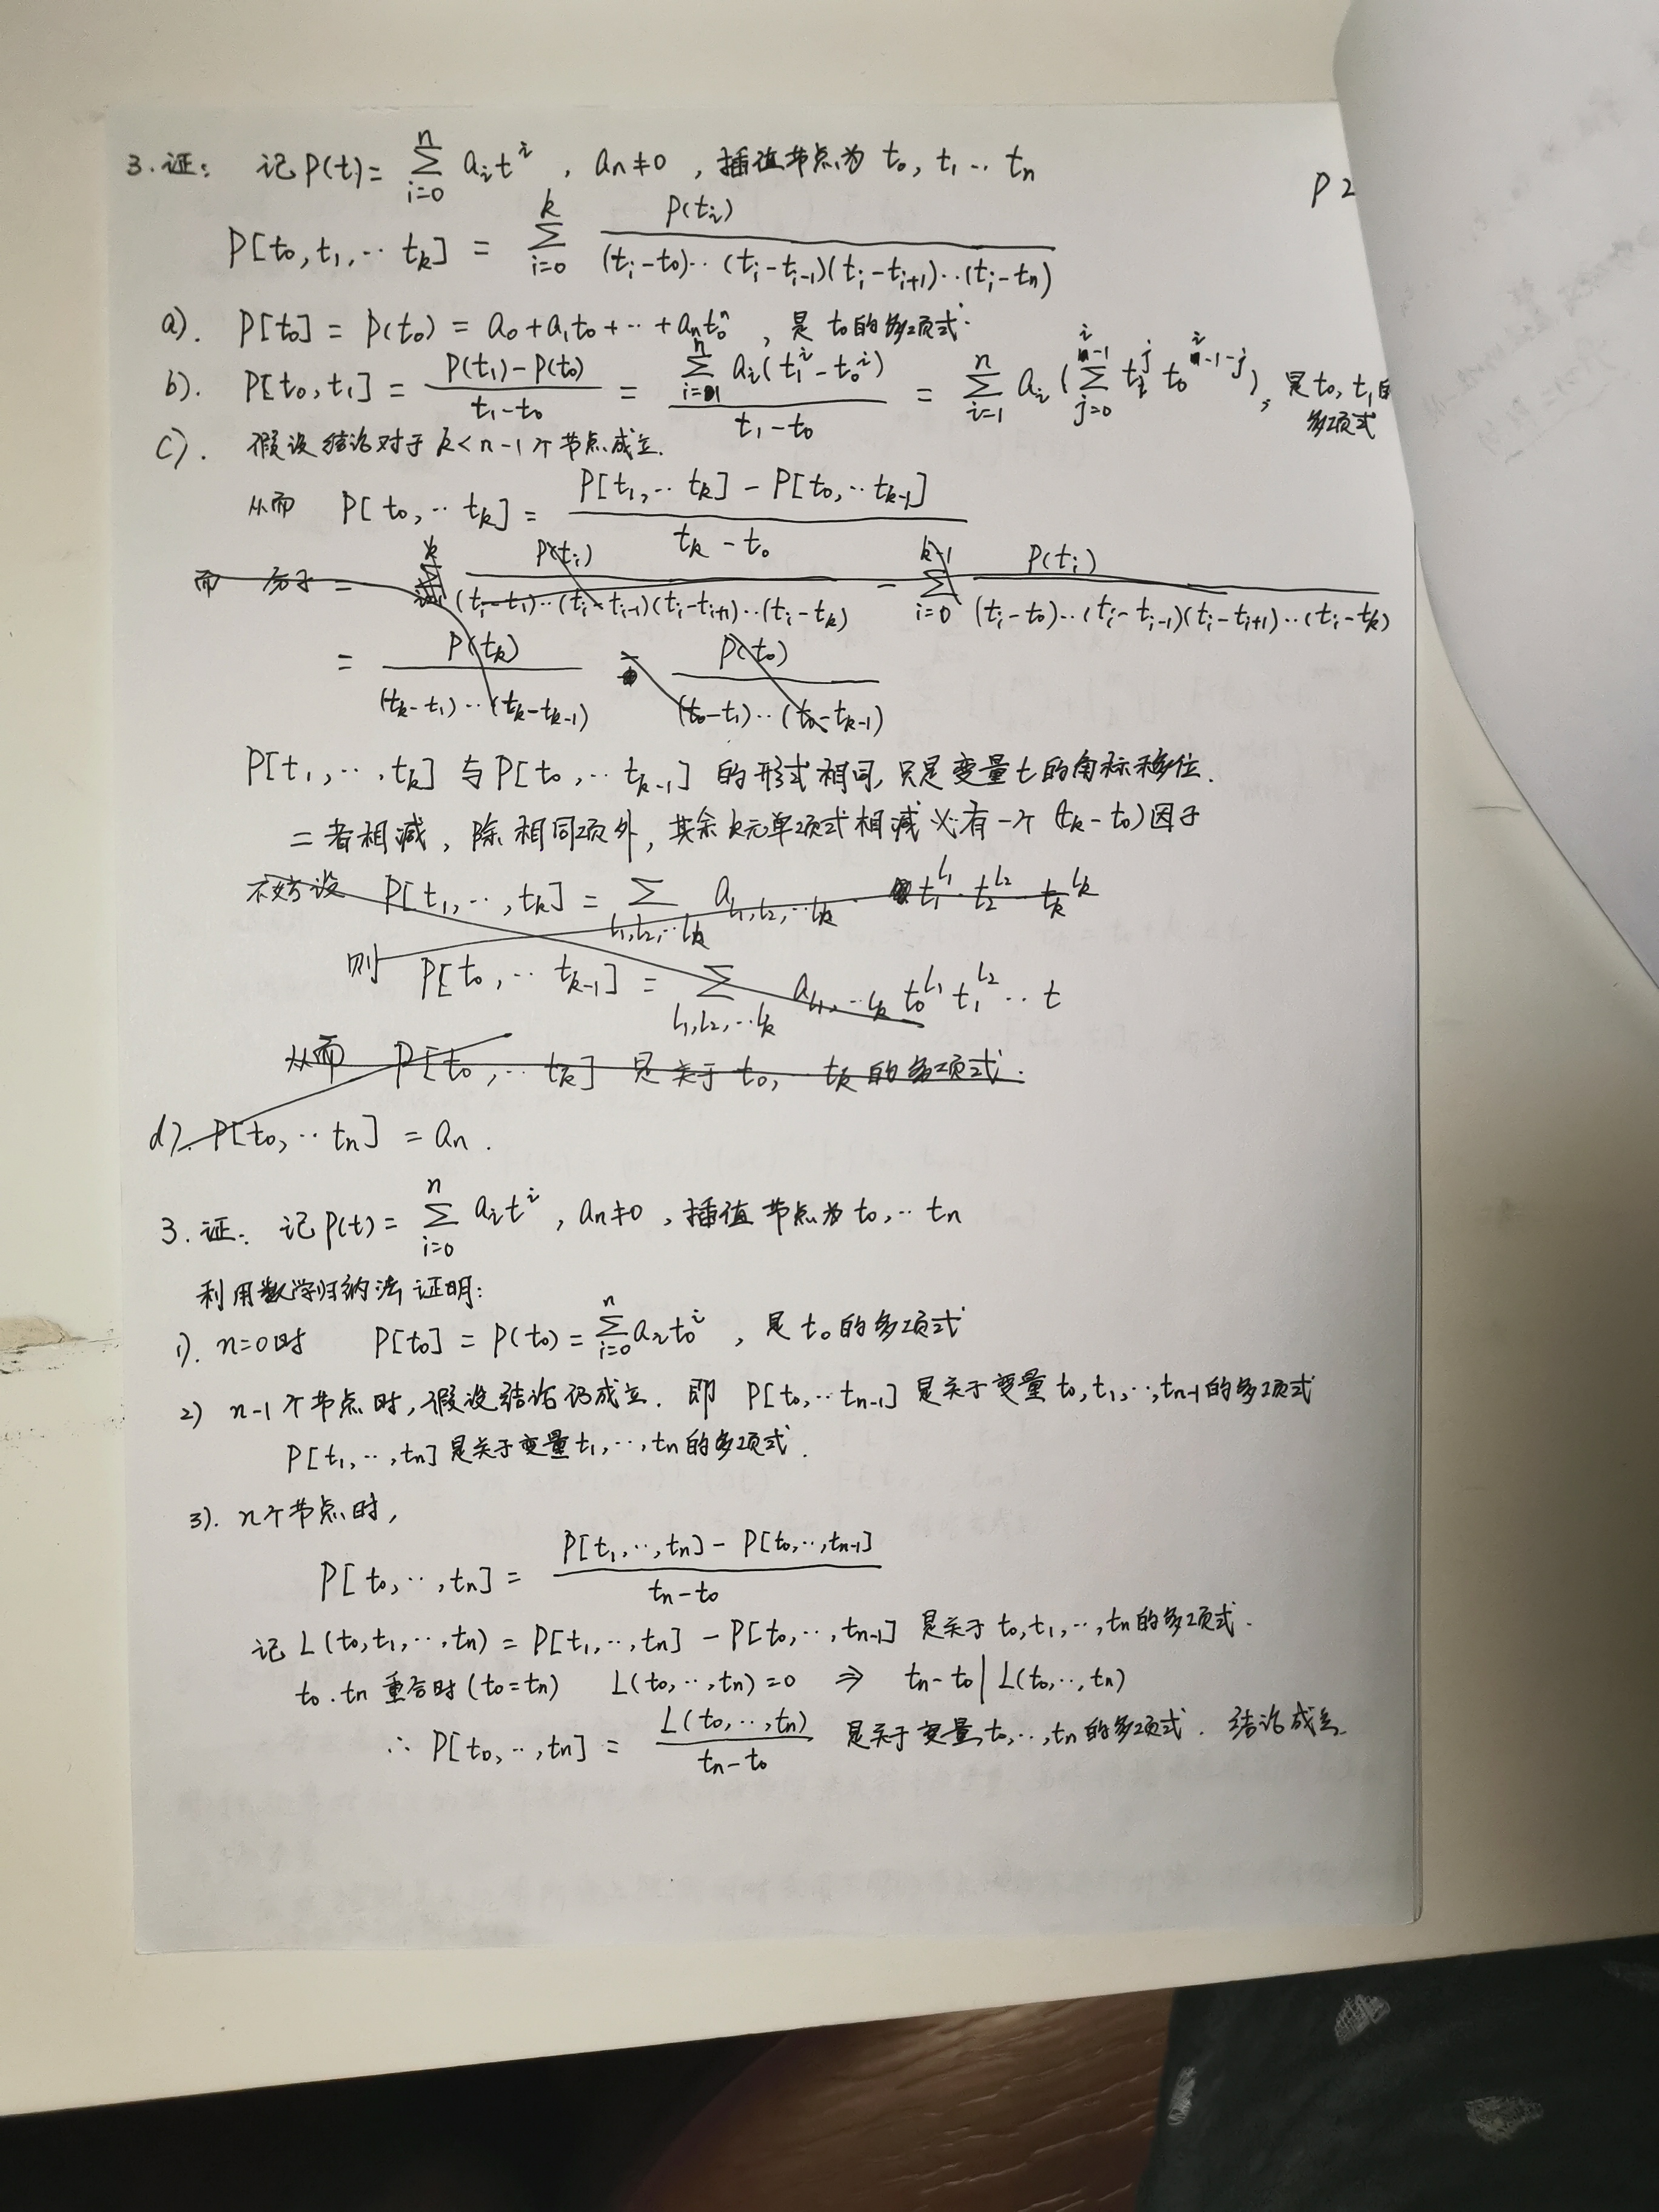 3.证: 记P(t)= \sum_{i=0}^{n} a_i t^i , a_n≠0 , 插值节点为 t_0, t_1 ‥ t_n
P 2
P[t_0,t_1,‥ t_k] = \sum_{i=0}^{k} \frac{P(t_i)}{(t_i-t_0)‥(t_i-t_{i-1})(t_i-t_{i+1})‥(t_i-t_n)}
a). P[t_0] = P(t_0) = a_0+a_1t_0+‥+a_nt_0^n , 是 t_0的多项式.
b). P[t_0,t_1] = \frac{P(t_1)-P(t_0)}{t_1-t_0} = \frac{\sum_{i=1}^{n} a_i(t_1^i-t_0^i)}{t_1-t_0} = \sum_{i=1}^{n} a_i ( \sum_{j=0}^{i-1} t_1^j t_0^{i-1-j}), 是t_0,t_1的
多项式
c). 假设结论对于 k<n-1个节点成立.
从而 P[t_0,‥t_k] = \frac{P[t_1,‥t_k]-P[t_0,‥t_{k-1}]}{t_k-t_0}
而 分子 = \sum \frac{P(t_i)}{(t_i-t_1)‥(t_i-t_{i-1})(t_i-t_{i+1})‥(t_i-t_k)} - \sum_{i=0}^{k-1} \frac{P(t_i)}{(t_i-t_0)‥(t_i-t_{i-1})(t_i-t_{i+1})‥(t_i-t_k)}
= \frac{P(t_k)}{(t_k-t_1)‥(t_k-t_{k-1})} - \frac{P(t_0)}{(t_0-t_1)‥(t_0-t_{k-1})}
P[t_1,‥,t_k] 与P[t_0,‥t_{k-1}] 的形式相同,只是变量t的角标移位.
二者相减, 除相同项外, 其余k元单项式相减必有一个 (t_k-t_0)因子
不妨设 P[t_1,‥,t_k] = \sum_{l_1,l_2,‥l_k} a_{l_1,l_2,‥l_k} · t_1^{l_1} · t_2^{l_2} ‥ t_k^{l_k}
则 P[t_0,‥t_{k-1}] = \sum_{l_1,l_2,‥l_k} a_{l_1,‥l_k} t_0^{l_1} t_1^{l_2} ‥ t
从而 P[t_0,‥t_k] 是关于 t_0,‥t_k 的多项式.
d). P[t_0,‥t_n] = a_n .
3.证: 记P(t)= \sum_{i=0}^{n} a_i t^i , a_n≠0 , 插值节点为t_0,‥t_n
利用数学归纳法证明:
1). n=0时 P[t_0] = P(t_0) = \sum_{i=0}^{n} a_i t_0^i , 是 t_0 的多项式
2) n-1个节点时,假设结论仍成立. 即 P[t_0,‥t_{n-1}] 是关于变量 t_0,t_1,‥,t_{n-1}的多项式
P[t_1,‥,t_n] 是关于变量t_1,‥,t_n的多项式.
3). n个节点时,
P[t_0,‥,t_n] = \frac{P[t_1,‥,t_n]-P[t_0,‥,t_{n-1}]}{t_n-t_0}
记 L(t_0,t_1,‥,t_n) = P[t_1,‥,t_n] - P[t_0,‥,t_{n-1}] 是关于 t_0,t_1,‥,t_n的多项式.
t_0.t_n 重合时(t_0=t_n) L(t_0,‥,t_n)=0 ⇒ t_n-t_0 | L(t_0,‥,t_n)
∴ P[t_0,‥,t_n] = \frac{L(t_0,‥,t_n)}{t_n-t_0} 是关于变量t_0,‥,t_n的多项式. 结论成立.